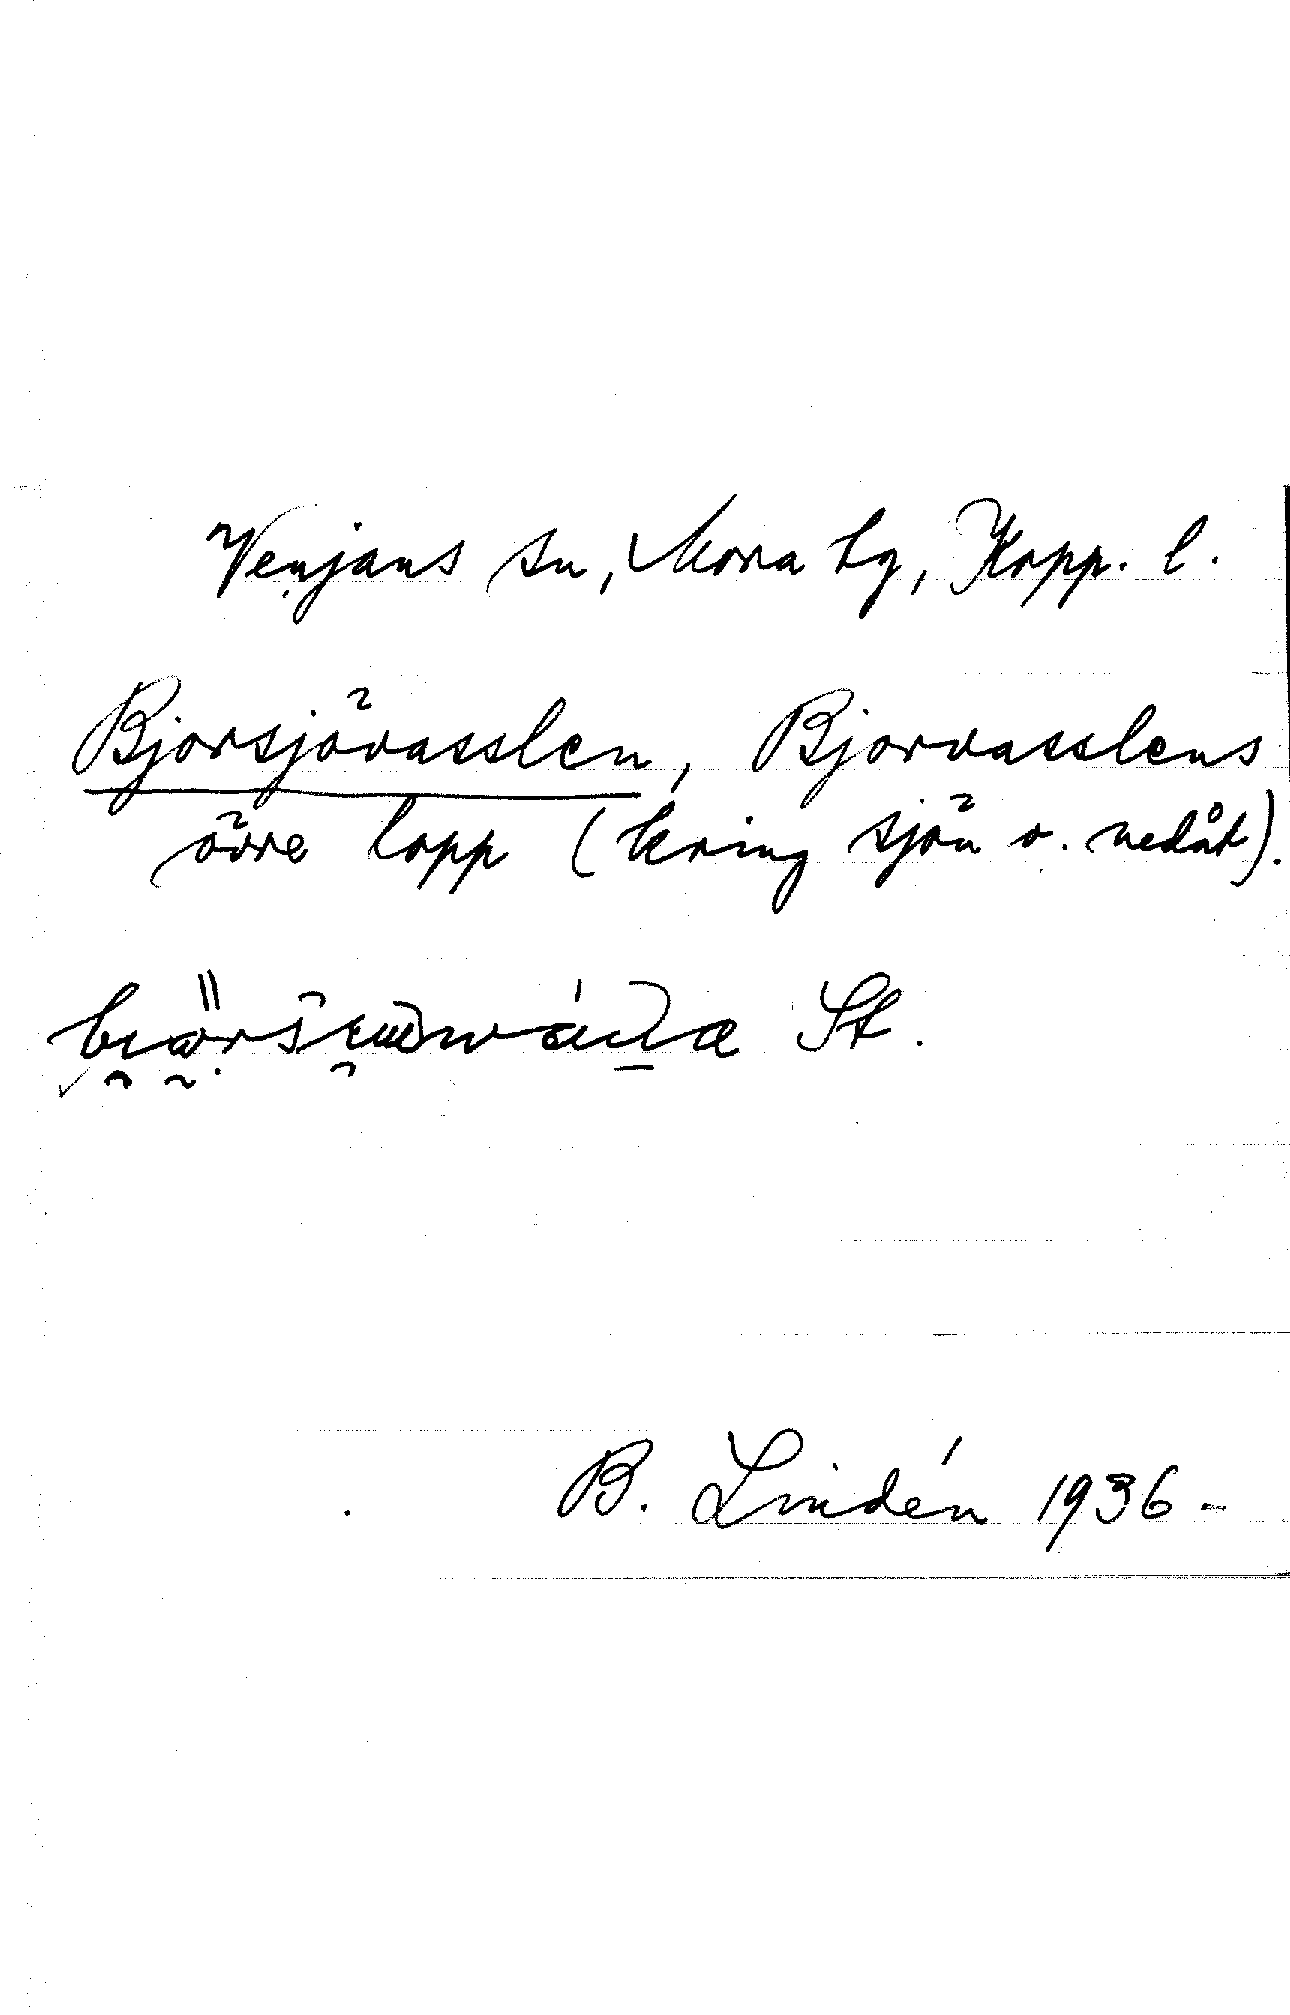 Venjans sn, Mora tg, Kopp. l.
Bjorsjövasslen, Bjorvasslens
övre lopp (kring sjön o. nedåt).
St.
B. Lindén 1936 -